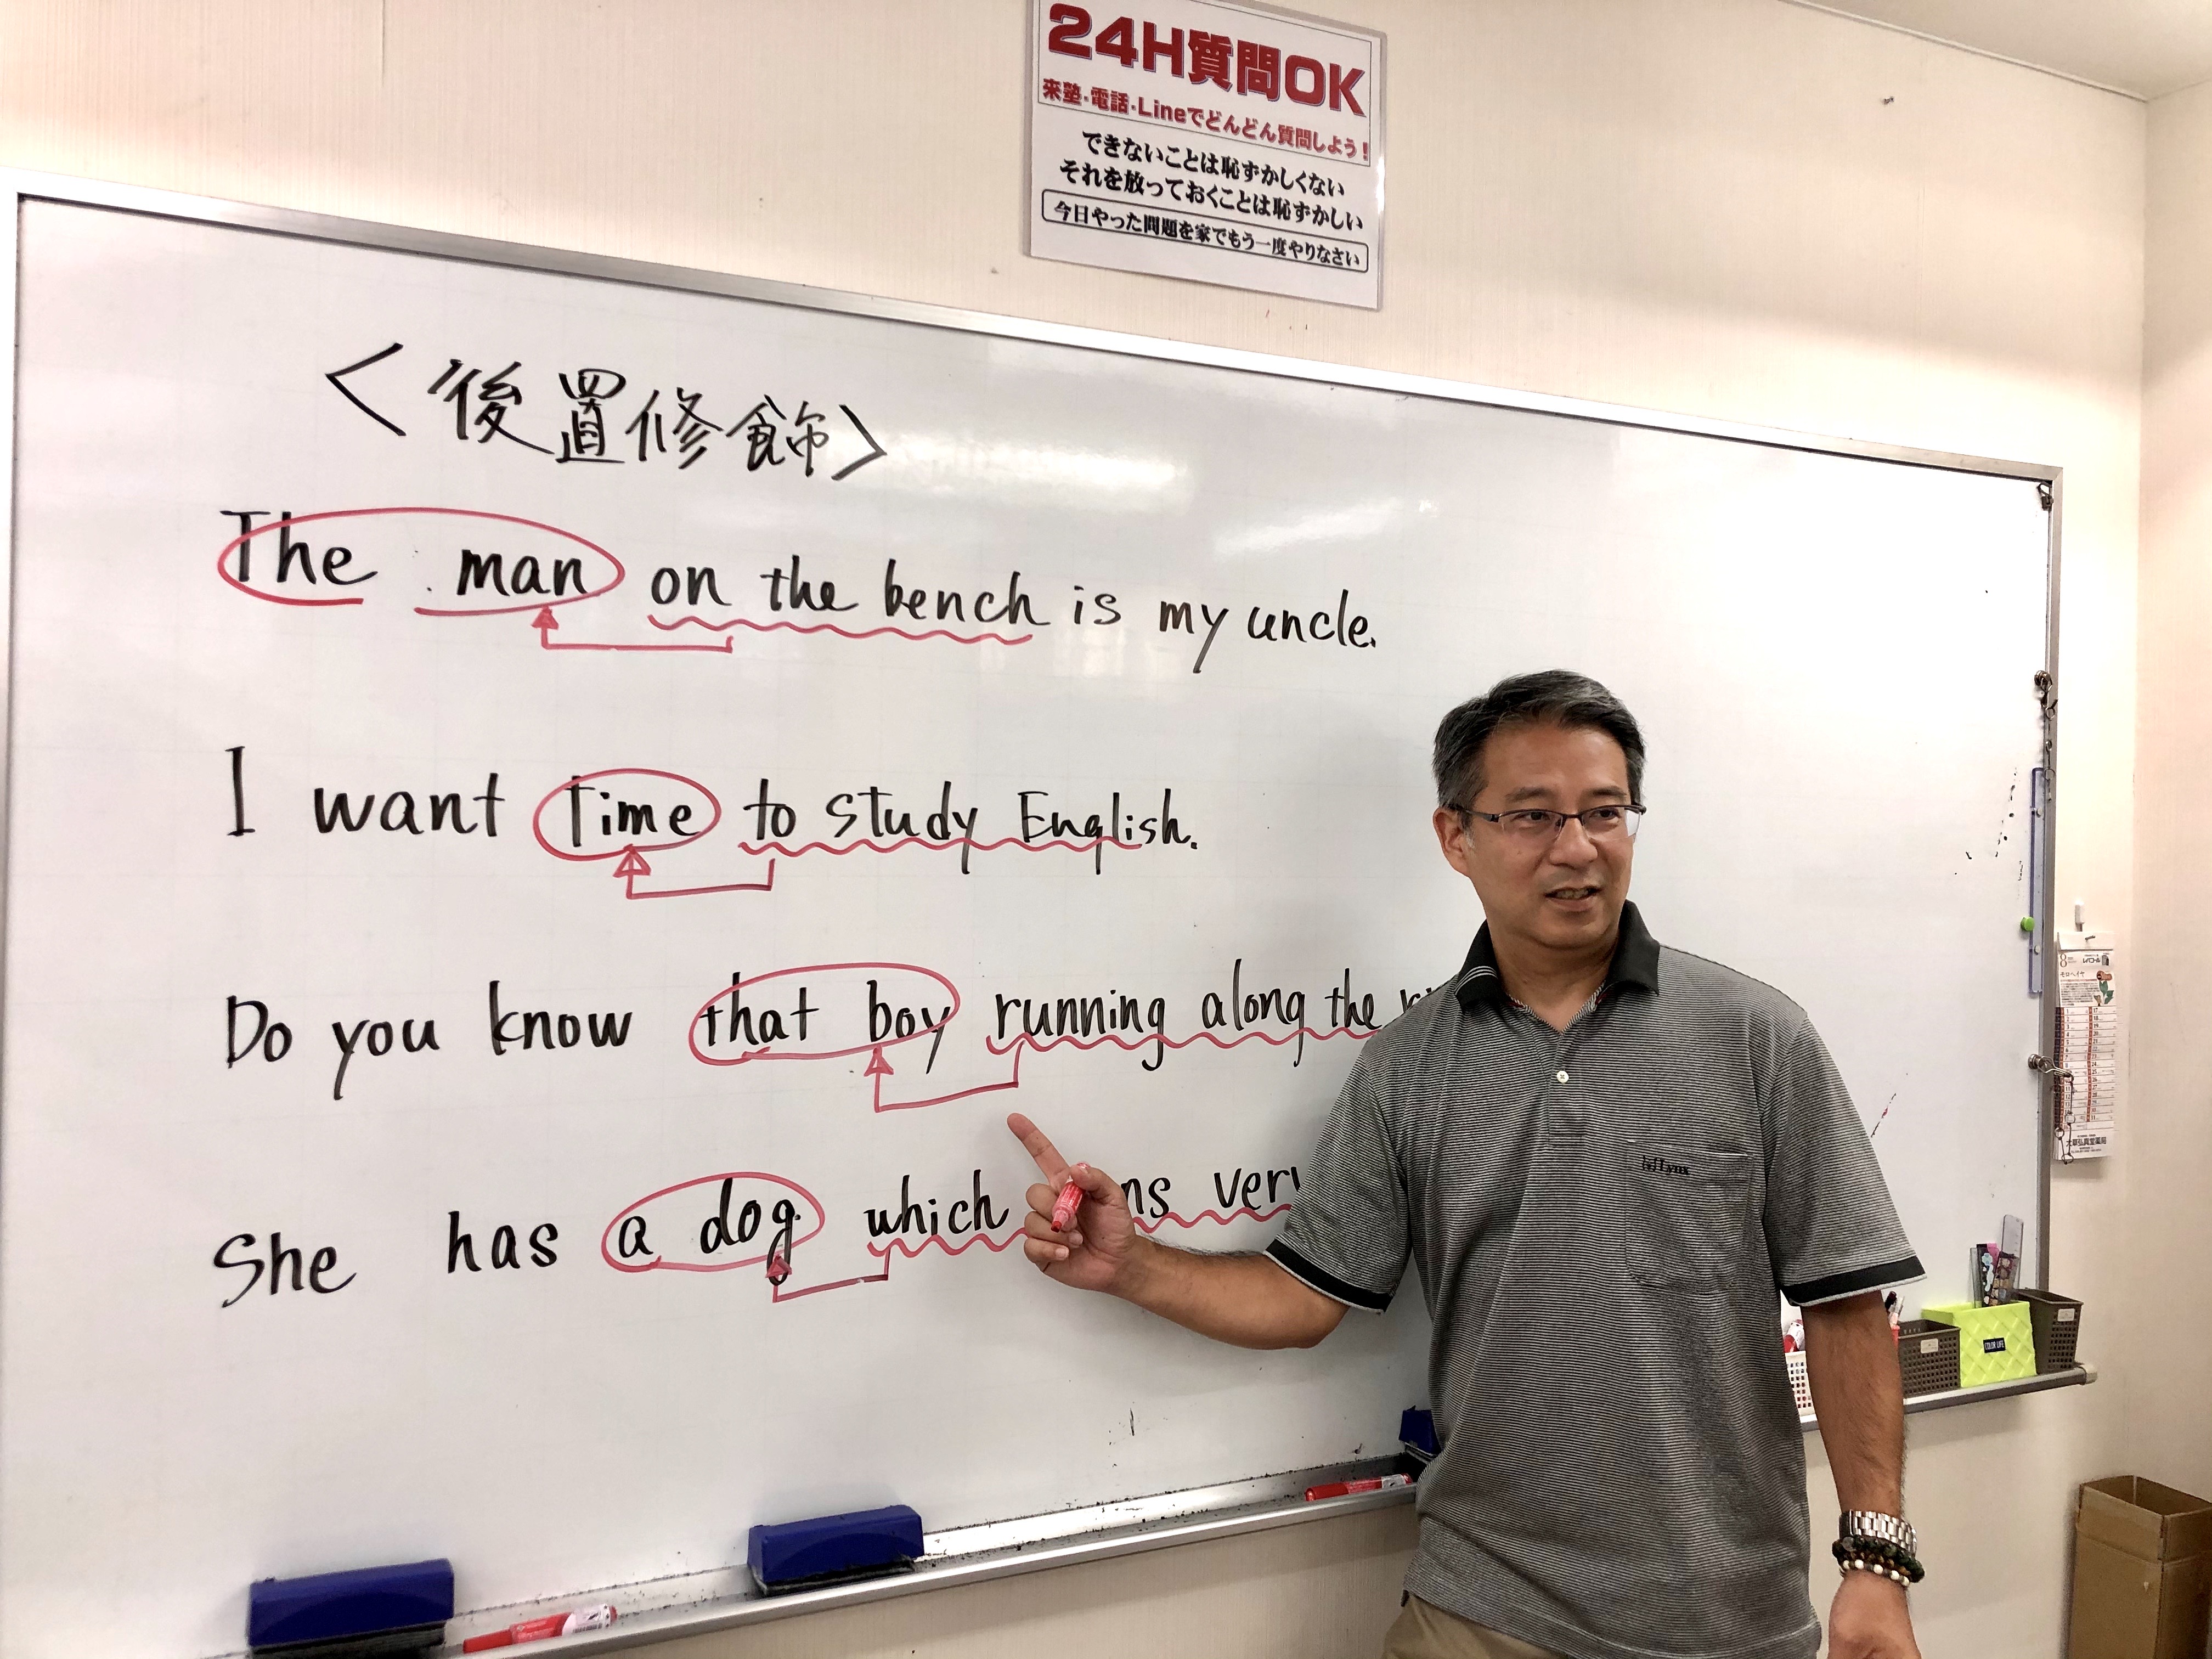 24H質問OK
来塾・電話・Lineでどんどん質問しよう!
できないことは恥ずかしくない
それを放っておくことは恥ずかしい
今日やった問題を家でもう一度やりなさい
<後置修飾>
The man on the bench is my uncle.
I want time to study English.
Do you know that boy running along the
She has a dog which
Lynx
COLOR LIFE
8
モロヘイヤ